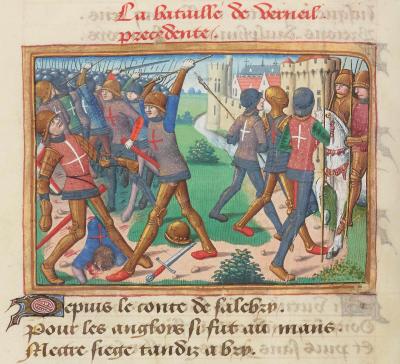 La bataille de verneil
precedente.
Depuis le conte de salebry
Pour les angloys si fut au mans
Mectre siege tandiz a bry.